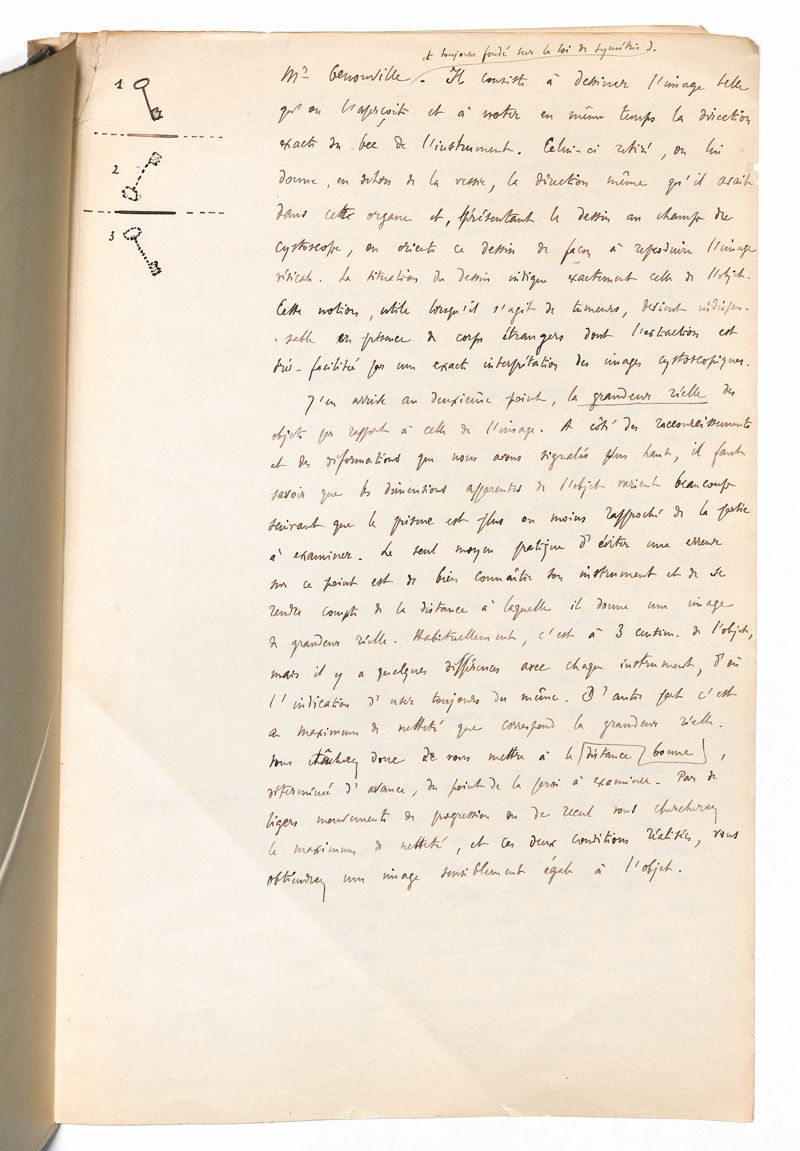 et toujours fondé sur la loi de symétrie).
1
Mr Genouville. Il consiste à dessiner l'image telle
qu'on l'aperçoit et à noter en même temps la direction
exacte du bec de l'instrument. Celui-ci retiré, on lui
2
donne, en dehors de la vessie, la direction même qu'il avait
dans cette organe et, présentant le dessin au champ du
3
cystoscope, on oriente ce dessin de façon à reproduire l'image
vésicale. La situation du dessin indique exactement celle de l'objet.
Cette notion, utile lorsqu'il s'agit de tumeurs, devient indispen-
-sable en présence de corps étrangers dont l'extraction est
très-facilitée par une exacte interprétation des images cystoscopiques.
J'en arrive au deuxième point, la grandeur réelle des
objets par rapport à celle de l'image. A côté des raccourcissements
et des déformations que nous avons signalés plus haut, il faut
savoir que les dimensions apparentes de l'objet varient beaucoup
suivant que le prisme est plus ou moins rapproché de la partie
à examiner. Le seul moyen pratique d'éviter une erreur
sur ce point est de bien connaître son instrument et de se
rendre compte de la distance à laquelle il donne une image
de grandeur réelle. Habituellement, c'est à 3 centim. de l'objet,
mais il y a quelques différences avec chaque instrument, d'où
l'indication d'user toujours du même. D'autre part c'est
au maximum de netteté que correspond la grandeur réelle.
Vous tâcherez donc de vous mettre à la distance bonne,
déterminée d'avance, du point de la paroi à examiner. Par de
légers mouvements de progression ou de recul vous chercherez
le maximum de netteté, et ces deux conditions réalisées, vous
obtiendrez une image sensiblement égale à l'objet.